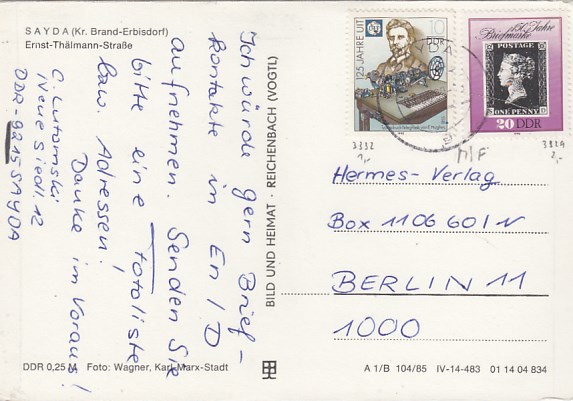 SAYDA (Kr. Brand-Erbisdorf)
Ernst-Thälmann-Straße
Ich würde gern Brief-
kontakte in En / D
aufnehmen. Senden Sie
bitte eine Fotoliste
bzw. Adressen.
Danke im Voraus!
C. Lutomski
Neue Siedl. 12
DDR-9215 SAYDA
BILD UND HEIMAT · REICHENBACH (VOGTL)
125 JAHRE UIT
10
DDR
150 Jahre
Briefmarke
POSTAGE
ONE PENNY
20 DDR
3332
1,-
MiF
3329
2,-
Hermes-Verlag
Box 110660/N
BERLIN 11
1000
DDR 0,25 M Foto: Wagner, Karl-Marx-Stadt
A 1/B 104/85 IV-14-483 01 14 04 834